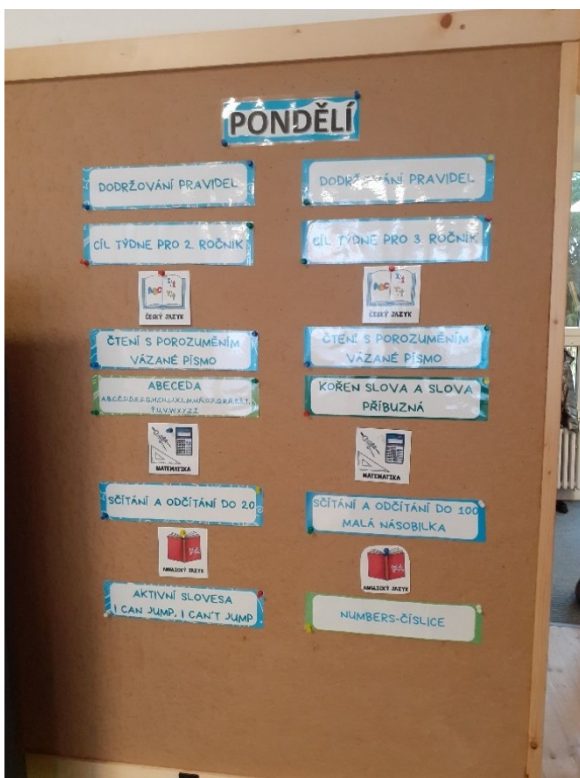 PONDĚLÍ
DODRŽOVÁNÍ PRAVIDEL
CÍL TÝDNE PRO 2. ROČNÍK
ČESKÝ JAZYK
ČTENÍ S POROZUMĚNÍM
VÁZANÉ PÍSMO
ABECEDA
MATEMATIKA
SČÍTÁNÍ A ODČÍTÁNÍ DO 20
ANGLICKÝ JAZYK
AKTIVNÍ SLOVESA
I CAN JUMP, I CAN'T JUMP
DODRŽOVÁNÍ PRAVIDEL
CÍL TÝDNE PRO 3. ROČNÍK
ČESKÝ JAZYK
ČTENÍ S POROZUMĚNÍM
VÁZANÉ PÍSMO
KOŘEN SLOVA A SLOVA
PŘÍBUZNÁ
MATEMATIKA
SČÍTÁNÍ A ODČÍTÁNÍ DO 100
MALÁ NÁSOBILKA
ANGLICKÝ JAZYK
NUMBERS-ČÍSLICE